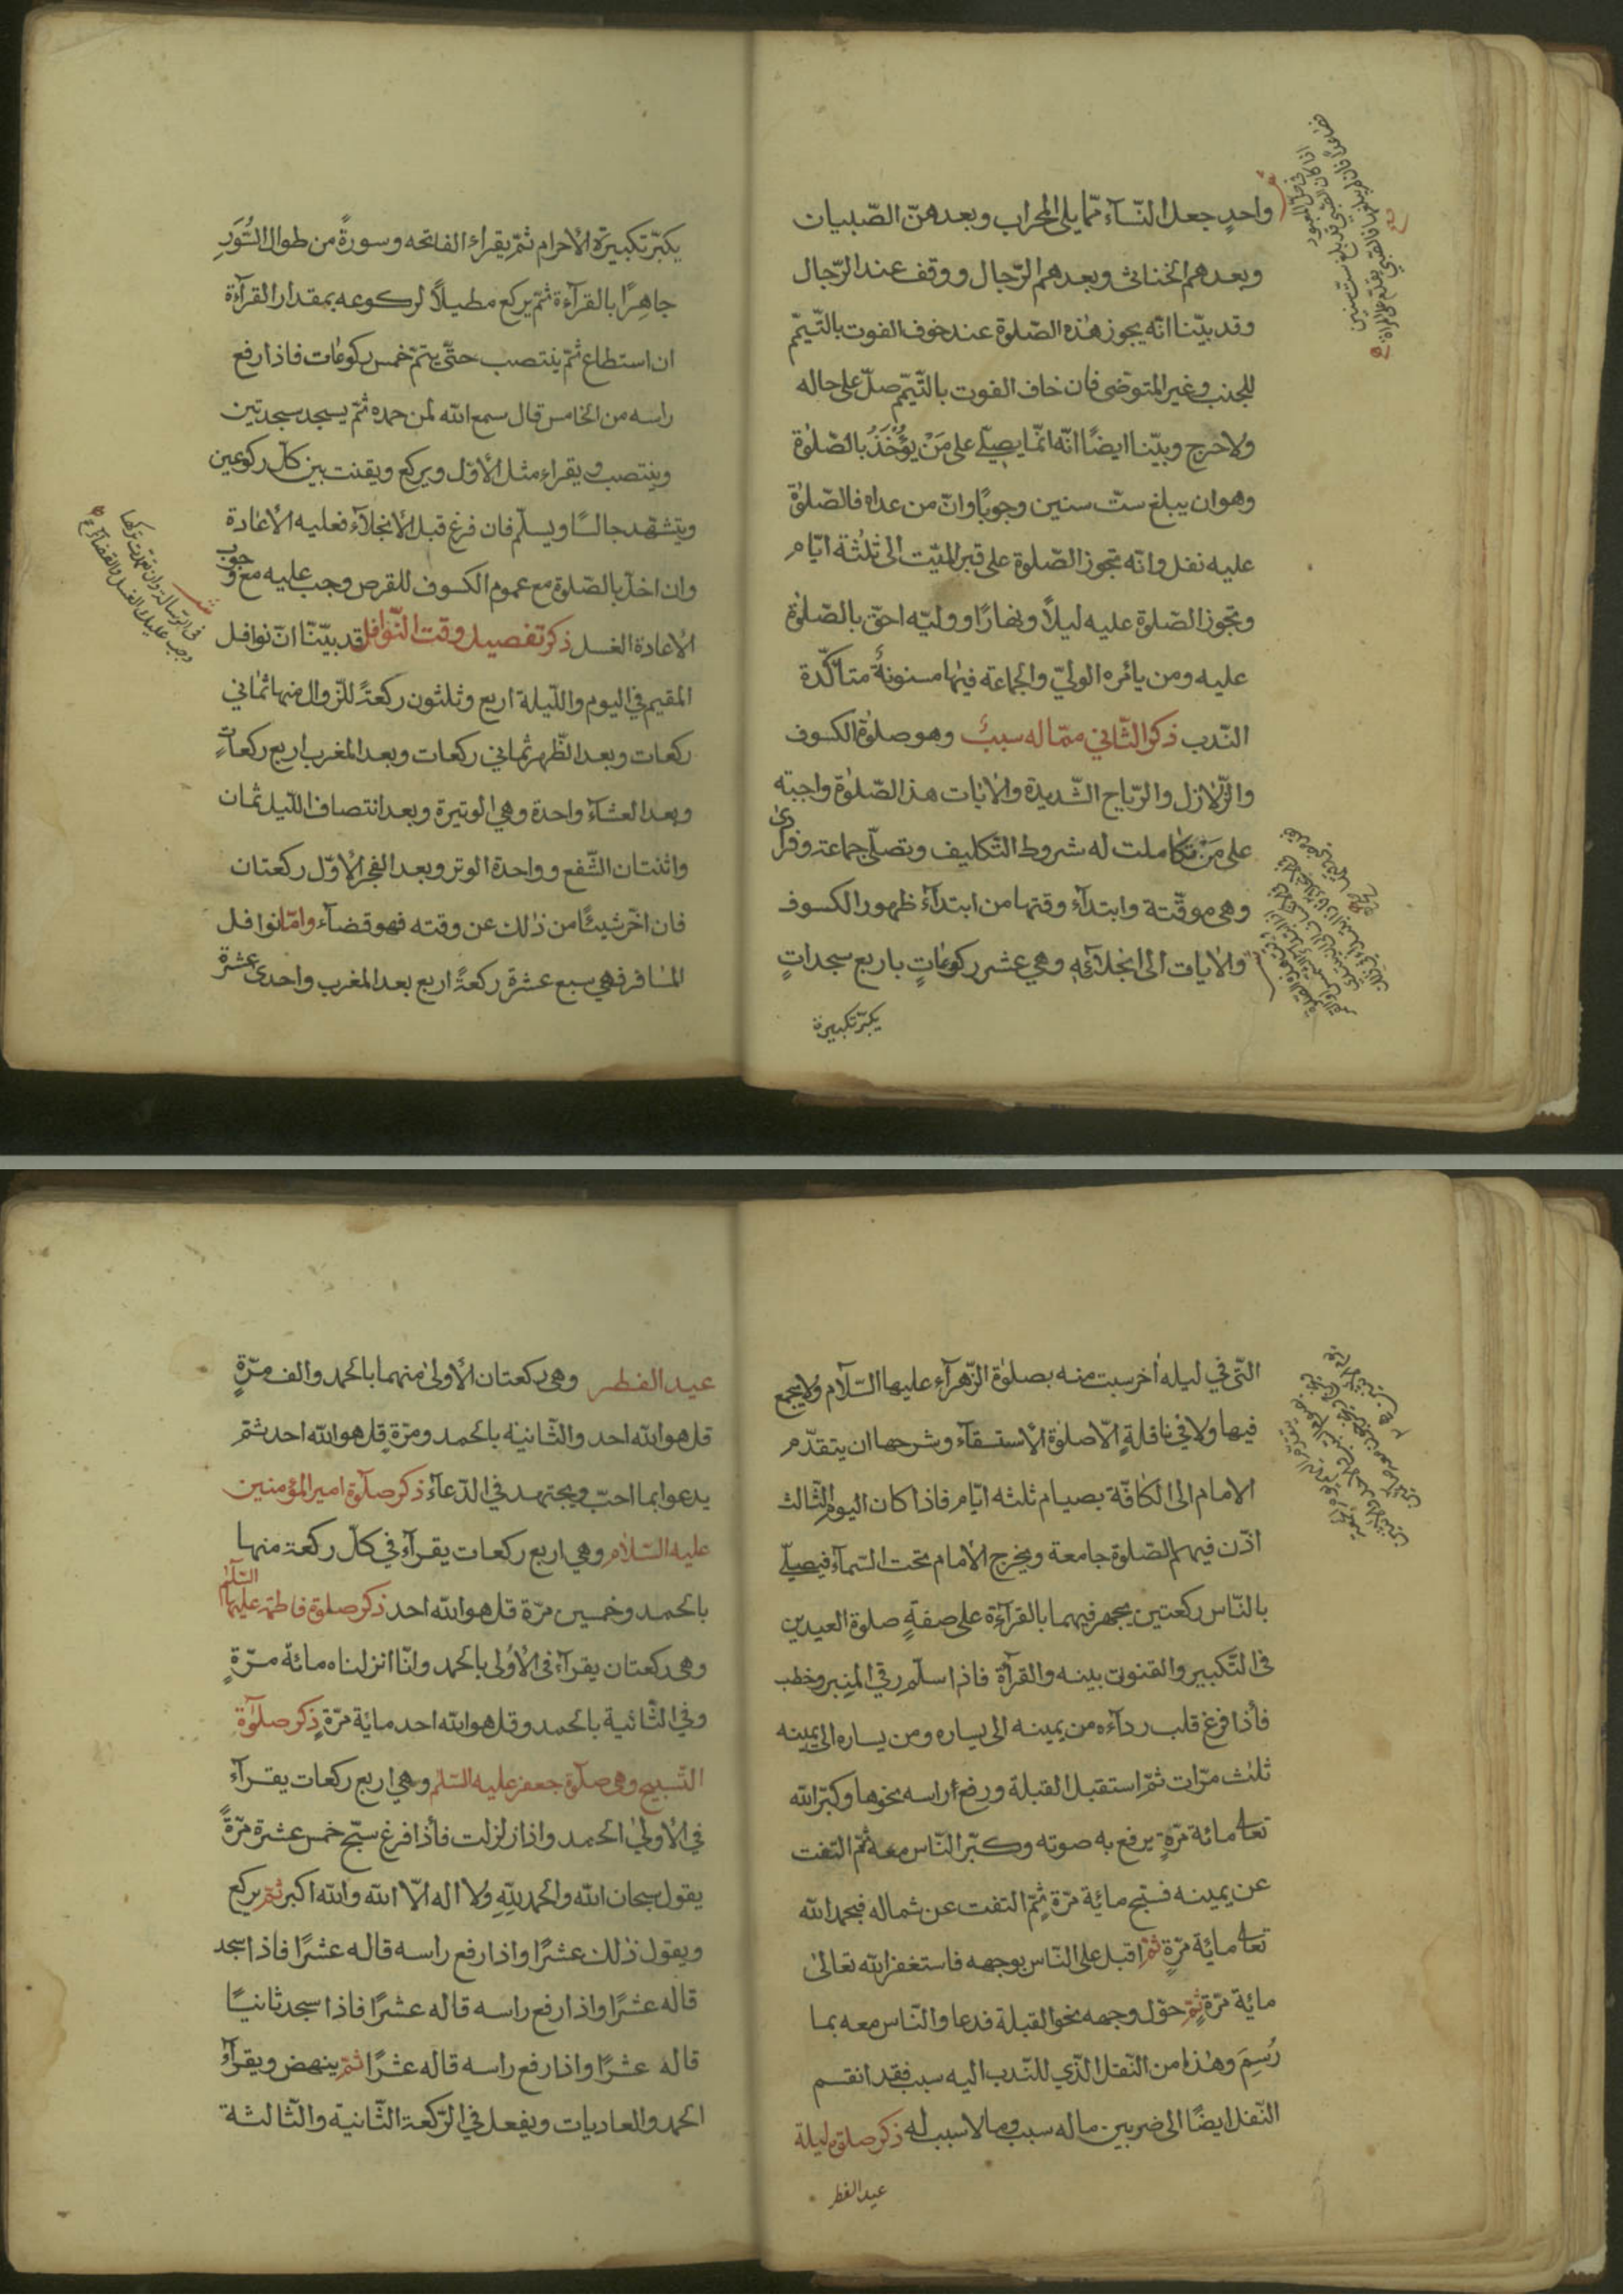 واحدٍ جعل النّسآء ممّا يلى المحراب وبعدهنّ الصّبيان
وبعدهم الخناثى وبعدهم الرّجال ووقف عند الرّجال
وقد بيّنا انّه يجوز هذه الصّلوة عند خوف الفوت بالتّيمّم
للجنب وغير المتوضى فان خاف الفوت بالتّيمّم صلّ على حاله
ولا حرج وبيّنا ايضًا انّه انّما يصلّي على مَنْ يؤُخَذُ بالصّلوٰة
وهو ان يبلغ ستّ سنين وجوبًا وانّ من عداه فالصّلوٰة
عليه نفل وانّه تجوز الصّلوة على قبر الميّت الى ثلٰثة ايّام
وتجوز الصّلوة عليه ليلاً ونهارًا ووليّه احقّ بالصّلوٰة
عليه ومن يأمره الوليّ والجماعة فيها مسنونةٌ متأكّدة
النّدب ذكر الثّاني ممّا له سببٌ وهو صلوٰة الكسوف
والزّلازل والرّياح الشّديدة والاٰيات هذا الصّلوٰة واجبته
على مَنْ تكاملت له شروط التّكليف وتصلّى جماعة وفرادىٰ
وهى موقّتة وابتدآء وقتها من ابتدآء ظهور الكسوف
والاٰيات الى انجلآئه وهي عشر ركوعاتٍ باربع سجداتٍ
يكبّر تكبيرة
يكبّر تكبيرة الأحرام ثمّ يقرأء الفاتحه وسورةً من طوال السُّوَرِ
جاهِرًا بالقرآءة ثمّ يركع مطيلاً لركوعه بمقدار القرآءة
ان استطاع ثمّ ينتصب حتّى يتمّ خمس ركوعات فاذا رفع
راسه من الخامس قال سمع الله لمن حمده ثمّ يسجد سجدتين
وينتصب ويقراء مثل الأوّل ويركع ويقنت بين كلّ ركوعين
ويتشهّد جالسًا ويسلّم فان فرغ قبل الأنجلآء فعليه الأعادة
وان اخلّ بالصّلوة مع عموم الكسوف للقرص وجب عليه مع وجوب
الأعادة الغسل ذكر تفصيل وقت النّوافل قد بيّنّا انّ نوافل
المقيم في اليوم واللّيلة اربع وثلثون ركعةً للزّوال منها ثمٰاني
ركعات وبعد الظّهر ثمٰاني ركعات وبعد المغرب اربع ركعاتٍ
وبعد العشآء واحدة وهي الوتيرة وبعد انتصاف اللّيل ثمان
واثنتان الشّفع وواحدة الوتر وبعد الفجر الأوّل ركعتان
فان اخّر شيئًا من ذلك عن وقته فهو قضآء وامّا نوافل
المسٰافر فهي سبع عشرة ركعةً اربع بعد المغرب واحدى عشرة
فى الرّسالة وان تعمّدت تركها
وجب عليك الغسل والقضآء
الّتى في ليله اٰخر سبت منه بصلوٰة الزّهرآء عليها السّلام ولا يجمع
فيها ولا في نافلةٍ الّا صلوٰة الأستسقآء وشرحها ان يتقدّم
الامام الى الكافّة بصيام ثلثه ايّام فاذا كان اليوم الثّالث
اذّن فيهم الصّلوٰة جامعة ويخرج الأمام تحت السّمآء فيصلّي
بالنّاس ركعتين يجهر فيهما بالقرآءة على صفةٍ صلوة العيدين
فى التّكبير والقنوت بينه والقرآة فاذا سلّم رقي المنبر وخطب
فأذا فرغ قلب ردآءه من يمينه الى يساره ومن يساره الى يمينه
ثلٰث مرّات ثمّ استقبل القبلة ورفع راسه نحوها وكبّر الله
تعالى مائة مرّةٍ يرفع به صوته وكبّر النّاس معه ثمّ التفت
عن يمينه فسبّح مائة مرّة ثمّ التفت عن شماله فحمد الله
تعالى مائة مرّةٍ ثمّ اقبل على النّاس بوجهه فاستغفر الله تعالىٰ
مائة مرّةٍ ثمّ حوّل وجهه نحو القبلة فدعا والنّاس معه بما
رُسِمَ وهٰذا من النّفل الّذي للنّدب اليه سبب فقد انقسم
النّفل ايضًا الى ضربين ما له سبب وما لا سبب له ذكر صلوة ليلة
عيد الفطر
عيد الفطر وهي ركعتان الأولىٰ منهما بالحمد والف مرّةٍ
قل هو الله احد والثّانية بالحمد ومرّة قل هو الله احد ثمّ
يدعوا بما احبّ ويجتهد في الدّعآء ذكر صلوٰة امير المؤمنين
عليه السّلام وهي اربع ركعات يقرآء في كلّ ركعة منها
بالحمد وخمسين مرّة قل هو الله احد ذكر صلوة فاطمة عليها السّلم
وهي ركعتان يقرآء فى الأولى بالحمد وانّا انزلناه مائة مرّةٍ
وفي الثّانية بالحمد وقل هو الله احد مائة مرّةٍ ذكر صلوٰة
التّسبيح وهي صلوٰة جعفر عليه السّلم وهي اربع ركعات يقرآء
في الأوليٰ الحمد واذا زلزلت فأذا فرغ سبّح خمس عشرة مرّةً
يقول سبحان الله والحمد للهِ ولا اله الّا الله والله اكبر ثمّ يركع
ويقول ذٰلك عشرًا واذا رفع راسه قاله عشرًا فاذا سجد
قاله عشرًا واذا رفع راسه قاله عشرًا فاذا سجد ثانيًا
قاله عشرًا واذا رفع راسه قاله عشرًا ثمّ ينهض ويقرآء
الحمد والعاديات ويفعل في الرّكعة الثّانية والثّالثة